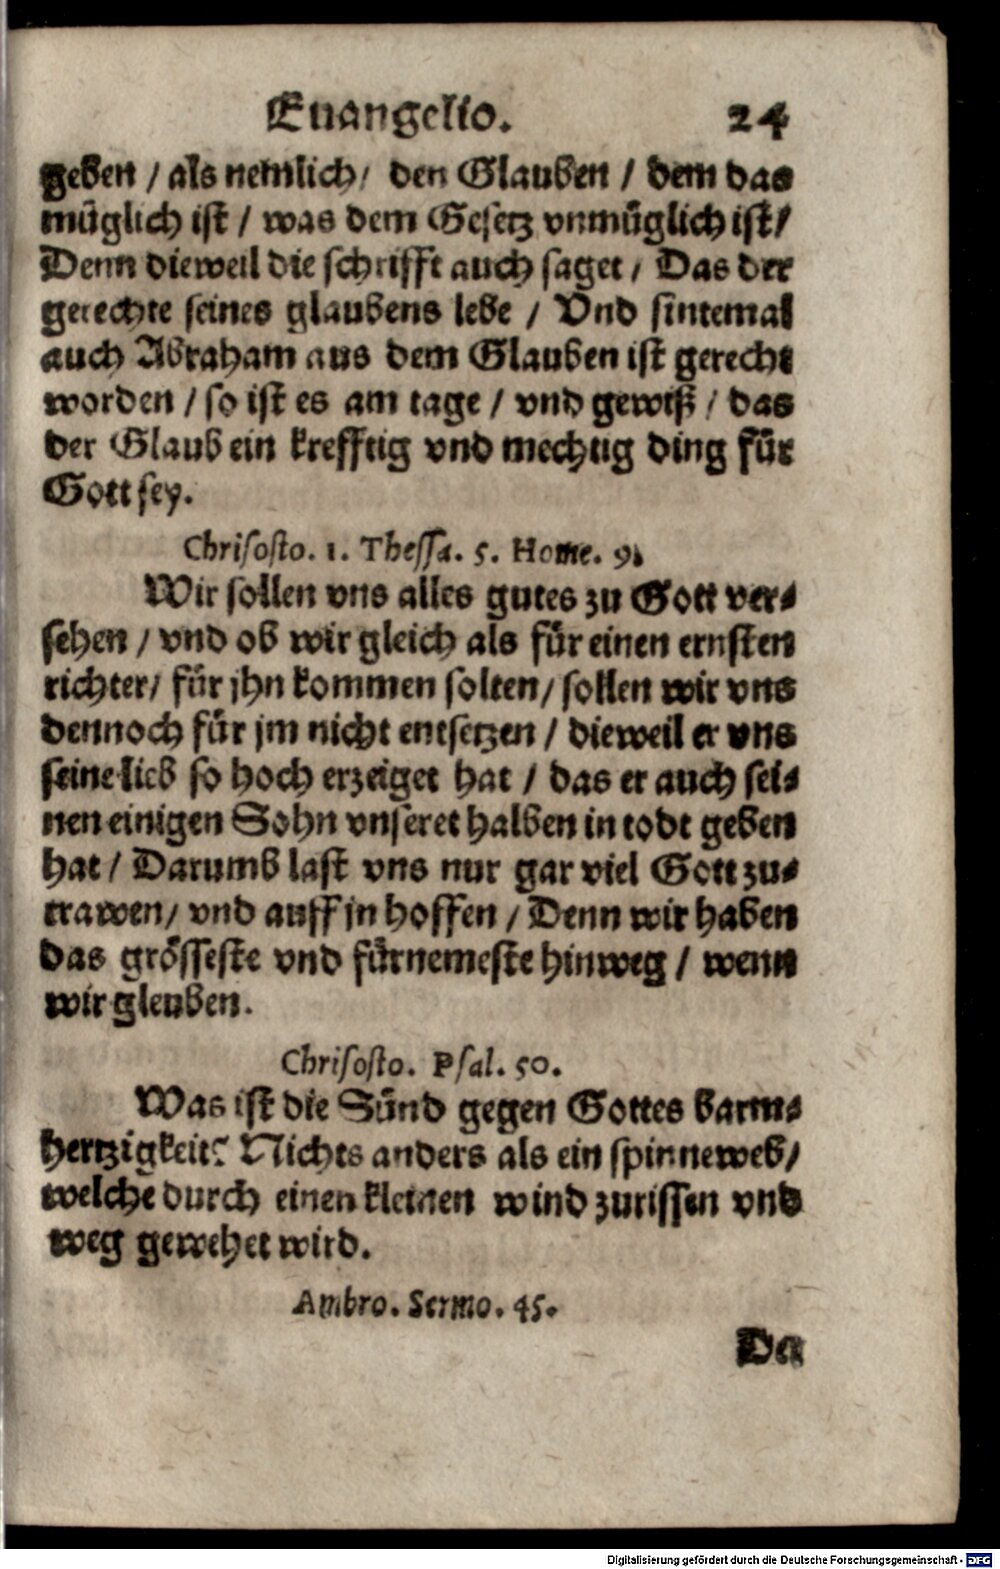 Euangelio. 24
geben / als nemlich / den Glauben / dem das
müglich ist / was dem Gesetz vnmüglich ist /
Denn dieweil die schrifft auch saget / Das der
gerechte seines glaubens lebe / Vnd sintemal
auch Abraham aus dem Glauben ist gerecht
worden / so ist es am tage / vnd gewiß / das
der Glaub ein krefftig vnd mechtig ding für
Gott sey.
Chrisosto. 1. Thessa. 5. Home. 9.
Wir sollen vns alles gutes zu Gott ver-
sehen / vnd ob wir gleich als für einen ernsten
richter / für jhn kommen solten / sollen wir vns
dennoch für jm nicht entsetzen / dieweil er vns
seine lieb so hoch erzeiget hat / das er auch sei-
nen einigen Sohn vnseret halben in todt geben
hat / Darumb last vns nur gar viel Gott zu-
trawen / vnd auff jn hoffen / Denn wir haben
das grösseste vnd fürnemeste hinweg / wenn
wir gleuben.
Chrisosto. Psal. 50.
Was ist die Sünd gegen Gottes barm-
hertzigkeit? Nichts anders als ein spinneweb /
welche durch einen kleinen wind zurissen vnd
weg gewehet wird.
Ambro. Sermo. 45.
Da
Digitalisierung gefördert durch die Deutsche Forschungsgemeinschaft - DFG